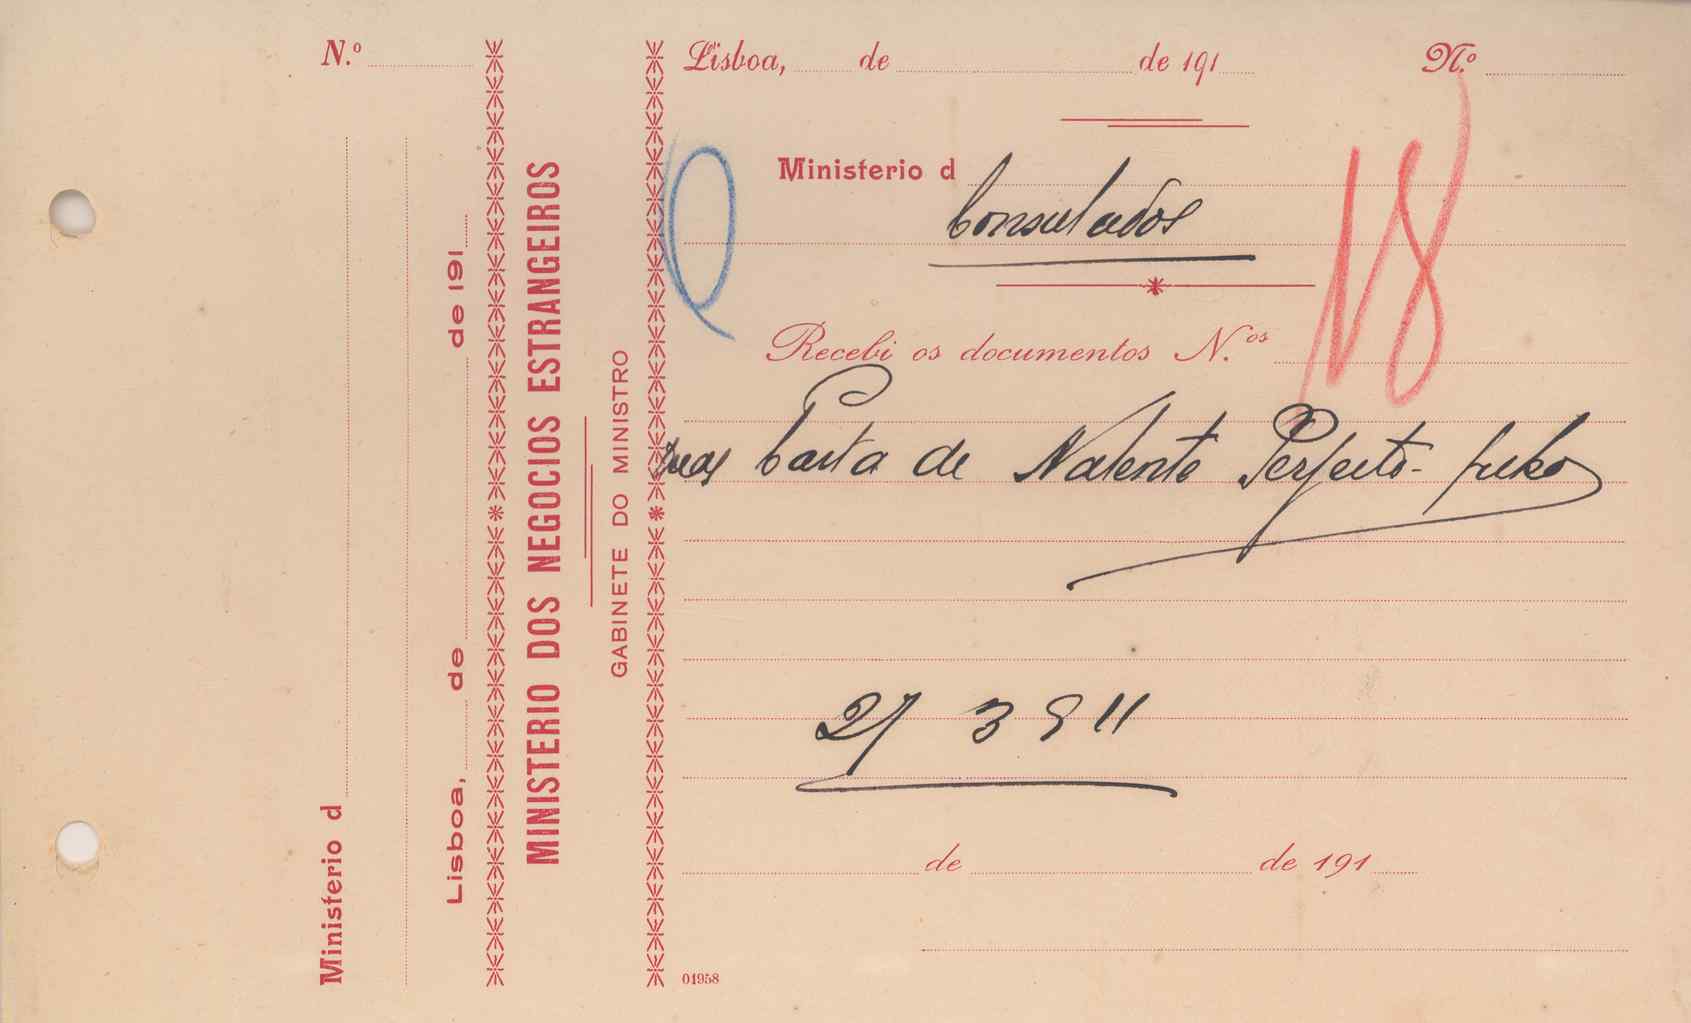 N.º
Ministerio d
Lisboa, de de 191
MINISTERIO DOS NEGOCIOS ESTRANGEIROS
GABINETE DO MINISTRO
Lisboa, de de 191 N.º
18
Ministerio d
Consulados
Recebi os documentos N.ºs
Carta de Valente Perfeito
27 3 911
de de 191
01958